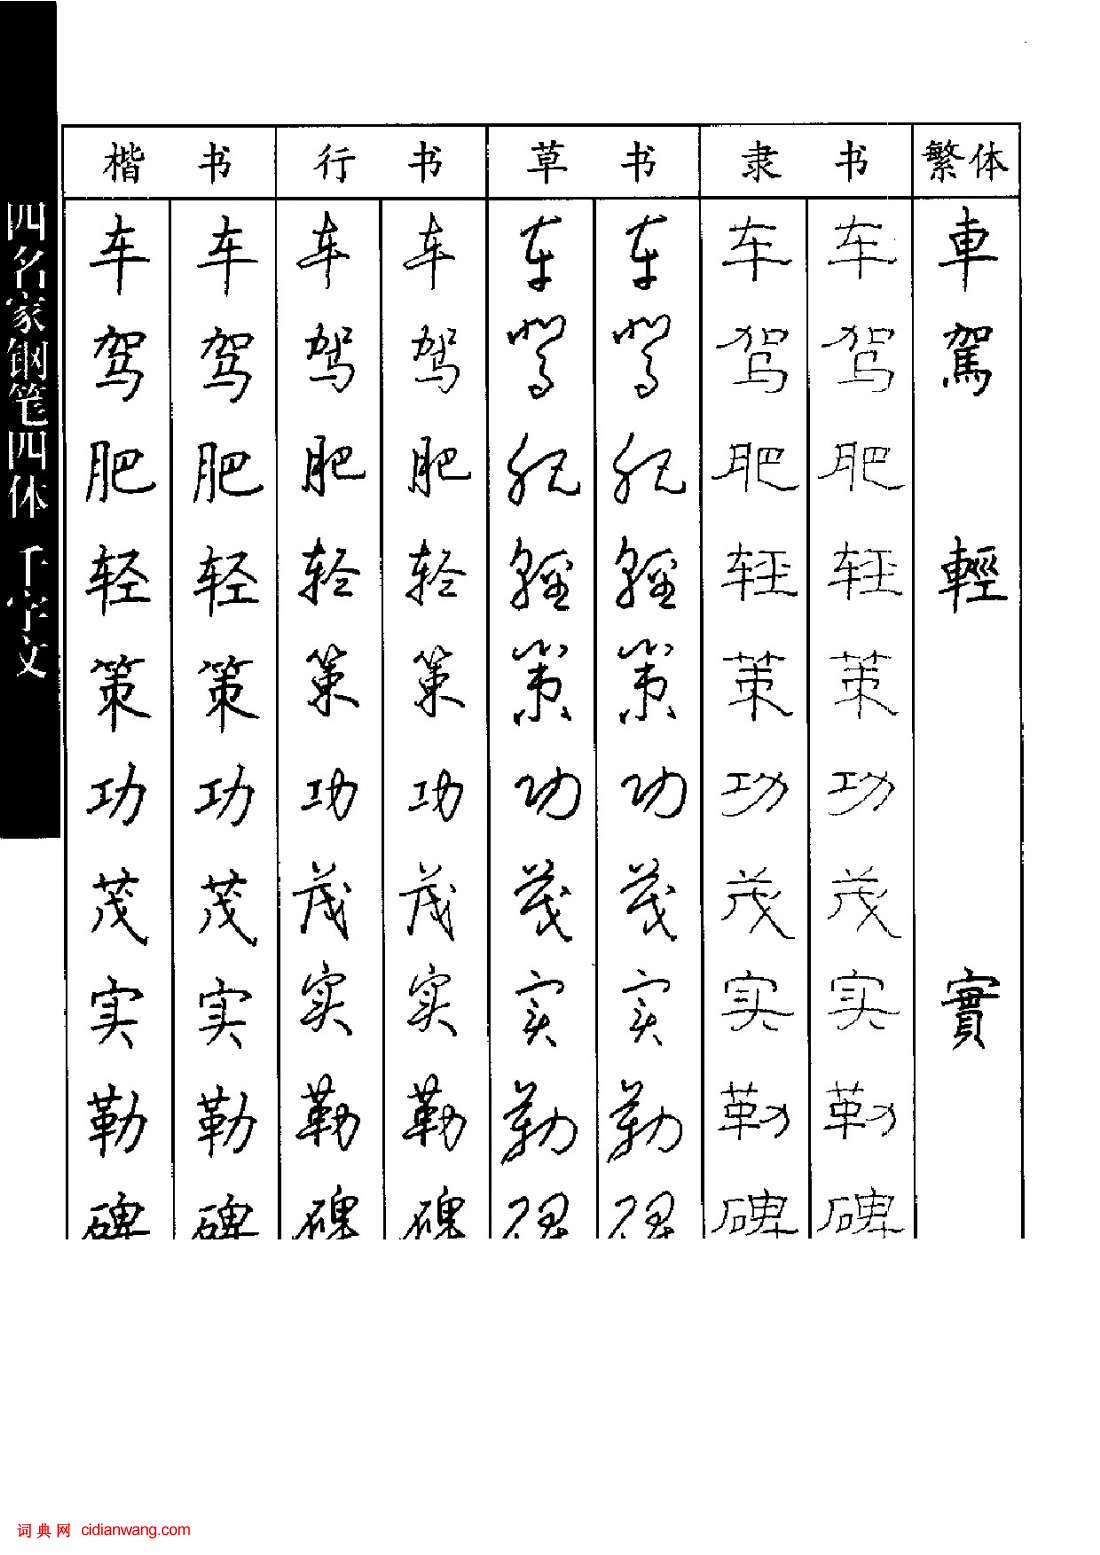 四名家钢笔四体 千字文
楷书 行书 草书 隶书 繁体
车 车 车 车 车 车 车 车 車
驾 驾 驾 驾 驾 驾 驾 驾 駕
肥 肥 肥 肥 肥 肥 肥 肥
轻 轻 轻 轻 轻 轻 轻 轻 輕
策 策 策 策 策 策 策 策
功 功 功 功 功 功 功 功
茂 茂 茂 茂 茂 茂 茂 茂
实 实 实 实 实 实 实 实 實
勒 勒 勒 勒 勒 勒 勒 勒
碑 碑 碑 碑 碑 碑 碑 碑
词典网 cidianwang.com